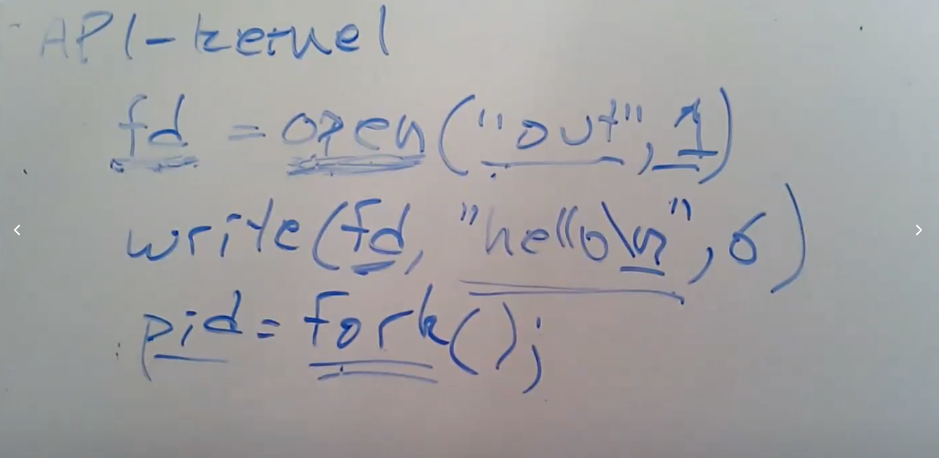 API-kernel
fd = open("out",1)
write(fd, "hello\n", 6)
pid = fork();